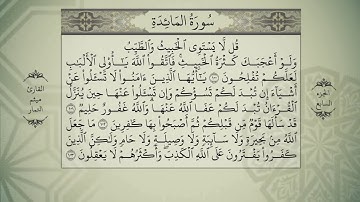 سُورَةُ المَائِدَةِ
قُل لَّا يَسْتَوِى الْخَبِيثُ وَالطَّيِّبُ
وَلَوْ أَعْجَبَكَ كَثْرَةُ الْخَبِيثِ فَاتَّقُوا اللَّهَ يَـٰٓأُولِى الْأَلْبَـٰبِ
لَعَلَّكُمْ تُفْلِحُونَ ١٠٠ يَـٰٓأَيُّهَا الَّذِينَ ءَامَنُوا لَا تَسْـَٔلُوا عَنْ
أَشْيَآءَ إِن تُبْدَ لَكُمْ تَسُؤْكُمْ وَإِن تَسْـَٔلُوا عَنْهَا حِينَ يُنَزَّلُ
الْقُرْءَانُ تُبْدَ لَكُمْ عَفَا اللَّهُ عَنْهَا وَاللَّهُ غَفُورٌ حَلِيمٌ ١٠١
قَدْ سَأَلَهَا قَوْمٌ مِّن قَبْلِكُمْ ثُمَّ أَصْبَحُوا بِهَا كَـٰفِرِينَ ١٠٢ مَا جَعَلَ
اللَّهُ مِنۢ بَحِيرَةٍ وَلَا سَآئِبَةٍ وَلَا وَصِيلَةٍ وَلَا حَامٍ وَلَـٰكِنَّ الَّذِينَ
كَفَرُوا يَفْتَرُونَ عَلَى اللَّهِ الْكَذِبَ وَأَكْثَرُهُمْ لَا يَعْقِلُونَ ١٠٣
الجزء
السابع
القارئ
ميثم
التمار